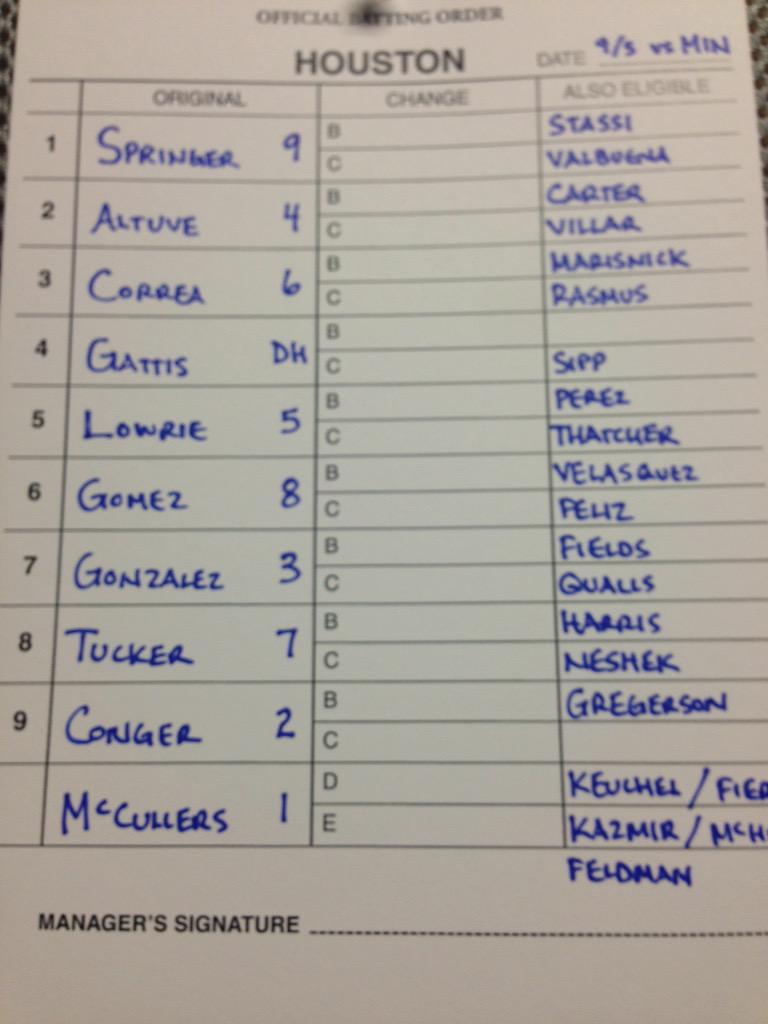 OFFICIAL BATTING ORDER
HOUSTON DATE 9/5 vs MIN
ORIGINAL CHANGE ALSO ELIGIBLE
1 SPRINGER 9 B STASSI
C VALBUENA
2 ALTUVE 4 B CARTER
C VILLAR
3 CORREA 6 B MARISNICK
C RASMUS
4 GATTIS DH B
C SIPP
5 LOWRIE 5 B PEREZ
C THATCHER
6 GOMEZ 8 B VELASQUEZ
C FELIZ
7 GONZALEZ 3 B FIELDS
C QUALLS
8 TUCKER 7 B HARRIS
C NESHEK
9 CONGER 2 B GREGERSON
C
McCULLERS 1 D KEUCHEL / FIER
E KAZMIR / McH
FELDMAN
MANAGER'S SIGNATURE